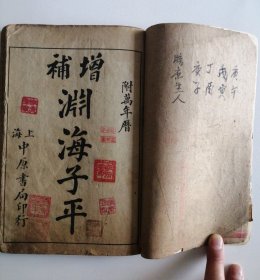 增補
淵海子平
附萬年曆
上海
中原書局印行
庚午
丙寅
丁酉
庚子